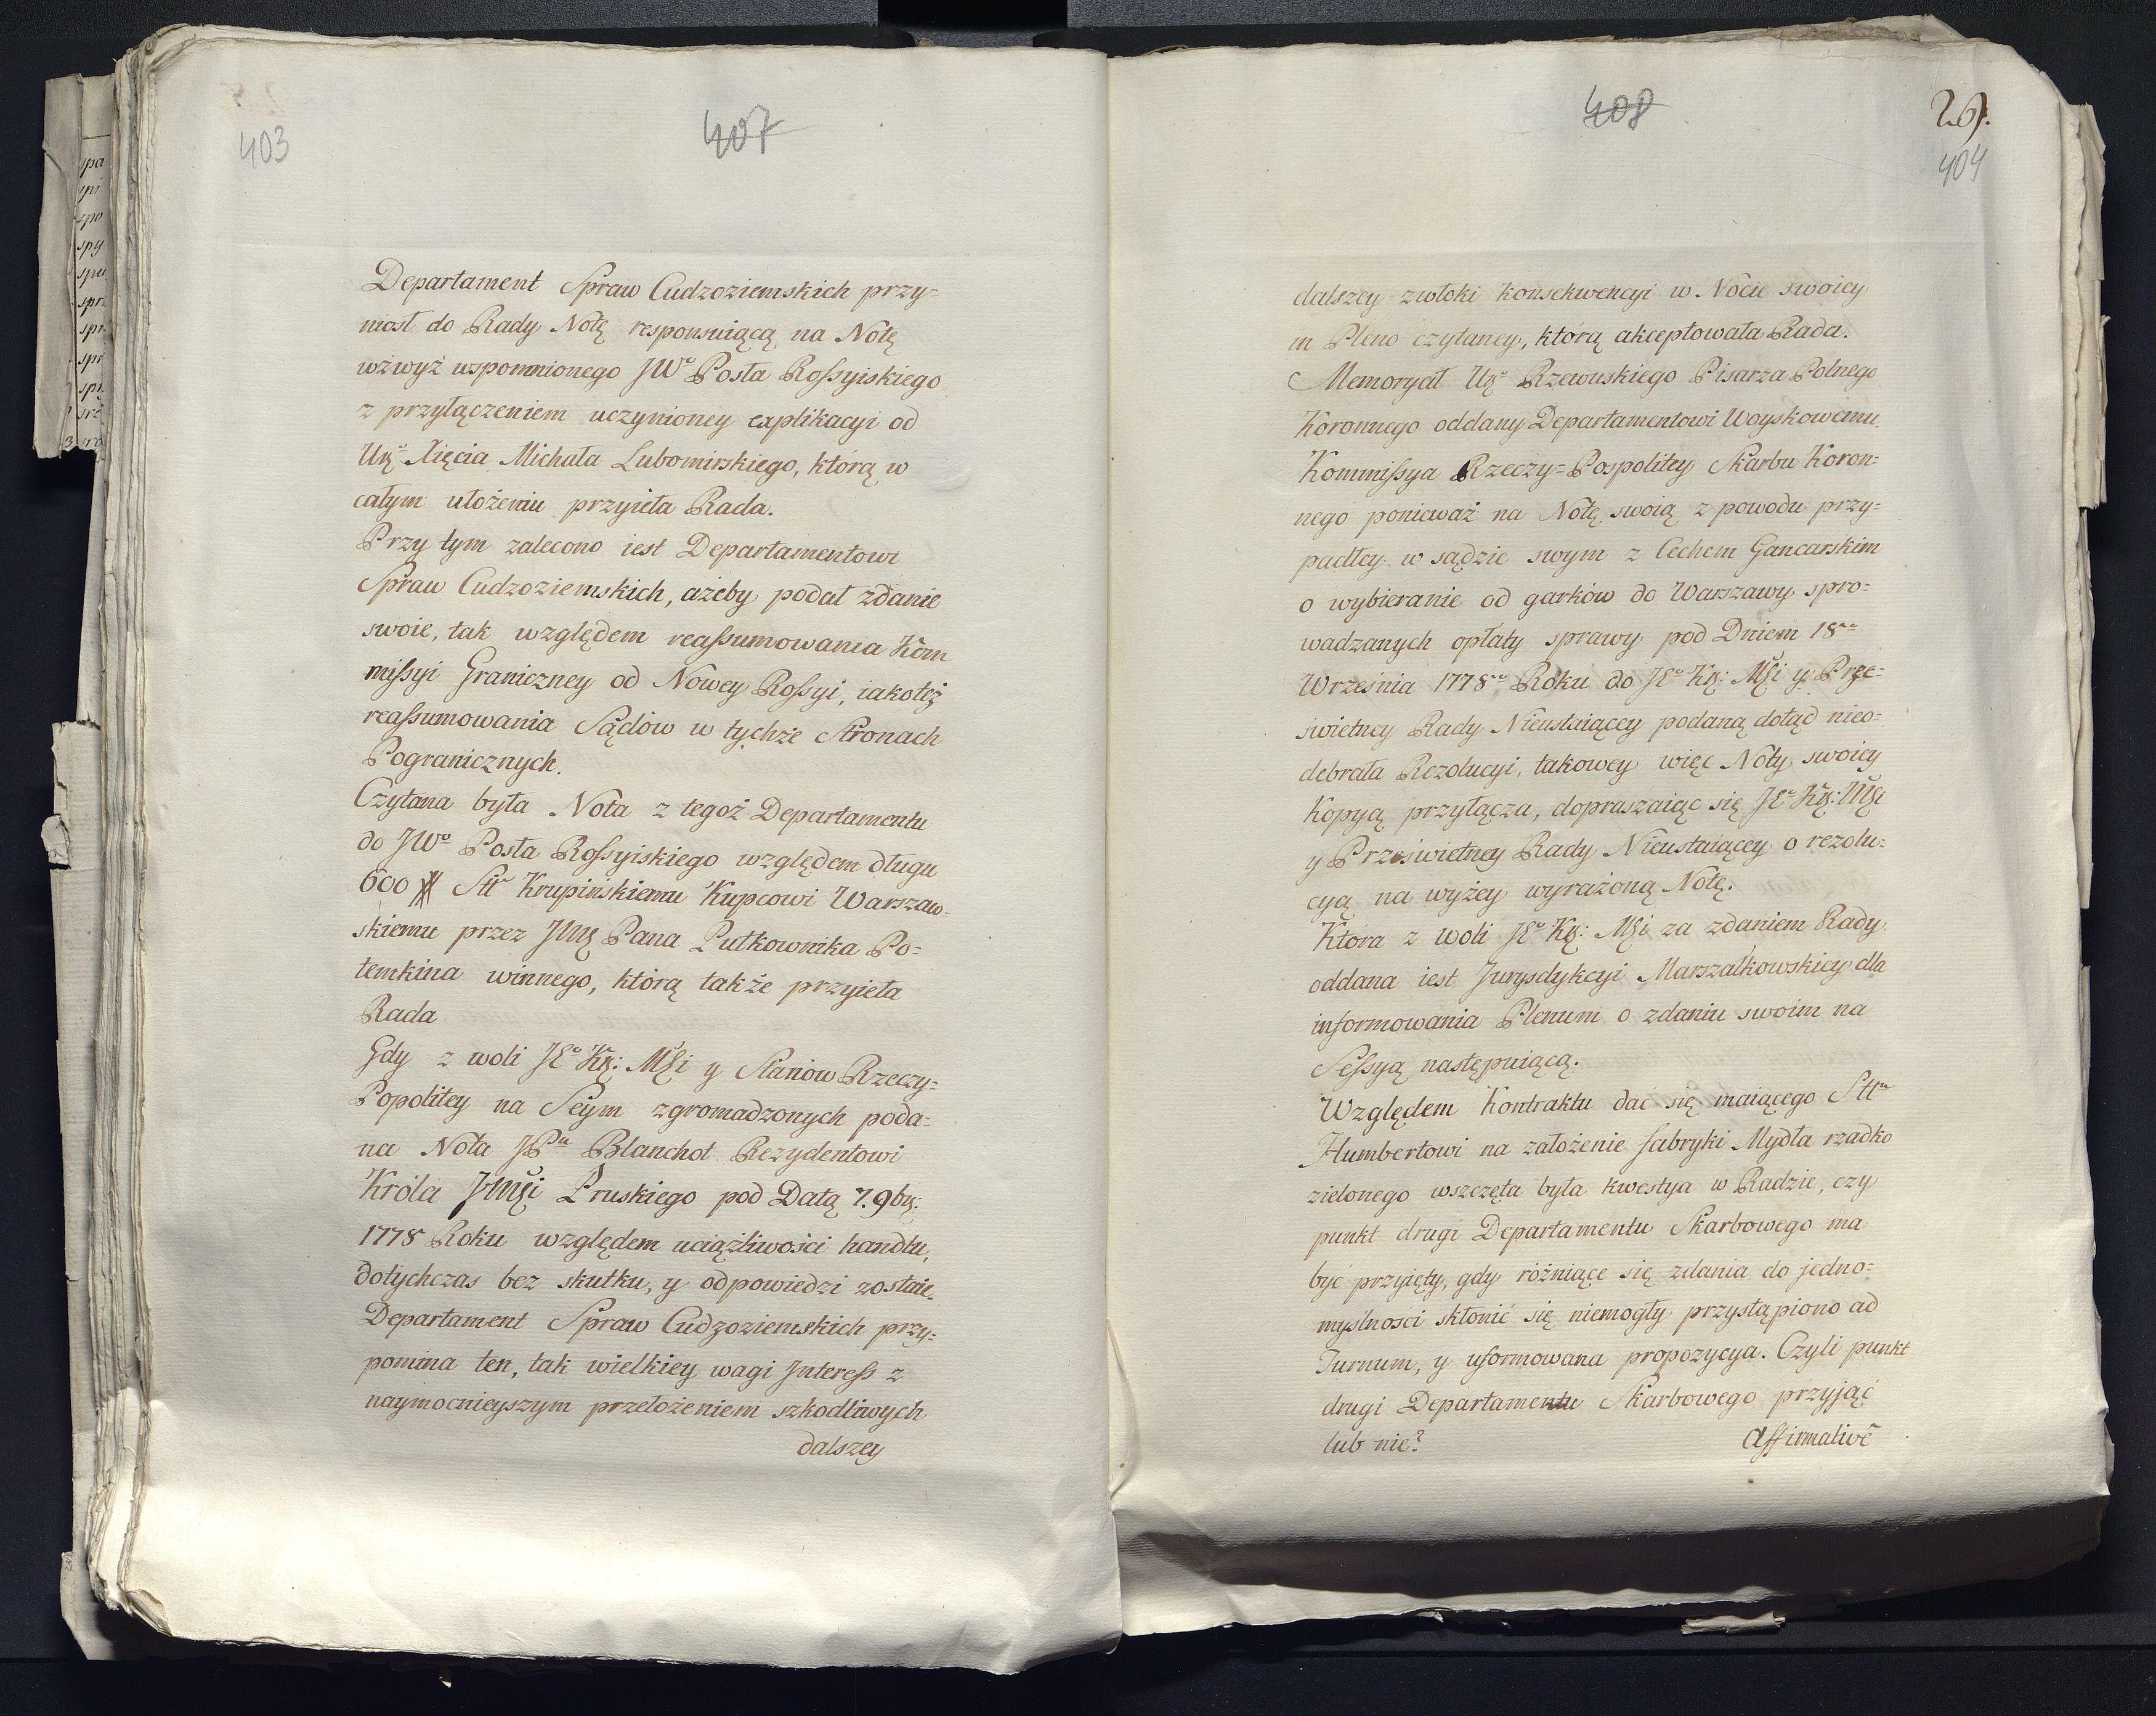 403
407
Departament Spraw Cudzoziemskich przy=
niosł do Rady Notę responsuiącą na Notę
wżwyż wspomnionego JWº Posła Roſsyiskiego
z przyłączeniem uczynioney explikacyi od
Urº Xięcia Michała Lubomirskiego, którą w
całym ułożeniu przyieła Rada.
Przy tym zalecono iest Departamentowi
Spraw Cudzoziemskich, ażeby podał zdanie
swoie, tak względem reaſsumowania Kom
miſsyi Graniczney od Nowey Roſsyi, iakoteż
reaſsumowania Sądów w tychże Stronach
Pogranicznych.
Czytana była Nota z tegoż Departamentu
do JWº Posła Roſsyiskiego względem długu
600 # Sttº Krupińskiemu Kupcowi Warszaw=
skiemu przez Jmę Pana Pułkownika Po=
temkina winnego, którą także przyieła
Rada
Gdy z woli JEº Kr: Męi y Stanów Rzeczy=
Popolitey na Seym zgromadzonych poda=
na Nota JPu Blanchot Rezydentowi
Króla Jmęi Pruskiego pod Datą 7. 9br:
1778 Roku względem uciążliwości handlu,
dotychczas bez skutku, y odpowiedzi zostaie.
Departament Spraw Cudzoziemskich przy=
pomina ten, tak wielkiey wagi Jntereſs z
naymocnieyszym przełożeniem szkodliwych
dalszey
408
404
dalszey zwłoki konsekwencyi w Nocie swoiey
in Pleno czytaney, którą akceptowała Rada.
Memoryał Urº Rzewuskiego Pisarza Polnego
Koronnego oddany Departamentowi Woyskowemu.
Kommiſsya Rzeczy=Pospolitey Skarbu Koron=
nego ponieważ na Notę swoią z powodu przy=
padłey w sądzie swym z Cechem Gancarskim
o wybieranie od garków do Warszawy spro=
wadzanych opłaty sprawy pod Dniem 18º
Września 1778º Roku do JEº Kr: Męi y Prze=
świetney Rady Nieustaiącey podaną dotąd nieo=
debrała Rezolucyi, takowey więc Noty swoiey
Kopyą przyłącza, dopraszaiąc się JEº Kr: Męi
y Prześwietney Rady Nieustaiącey o rezolu=
cyą na wyżey wyrażoną Notę.
Która z woli JEº Kr: Męi za zdaniem Rady
oddana iest Jurysdykcyi Marszałkowskiey dla
informowania Plenum o zdaniu swoim na
Seſsyą następuiącą.
Względem Kontraktu dać się maiącego Sttu
Humbertowi na założenie fabryki Mydła rzadko
zielonego wszczęta była kwestya w Radzie, czy
punkt drugi Departamentu Skarbowego ma
być przyięty, gdy różniące się zdania do jedno=
myślności skłonić się niemogły przystąpiono ad
Turnum, y uformowana propozycya. Czyli punkt
drugi Departamentu Skarbowego przyjąć
lub nie? Affirmativè